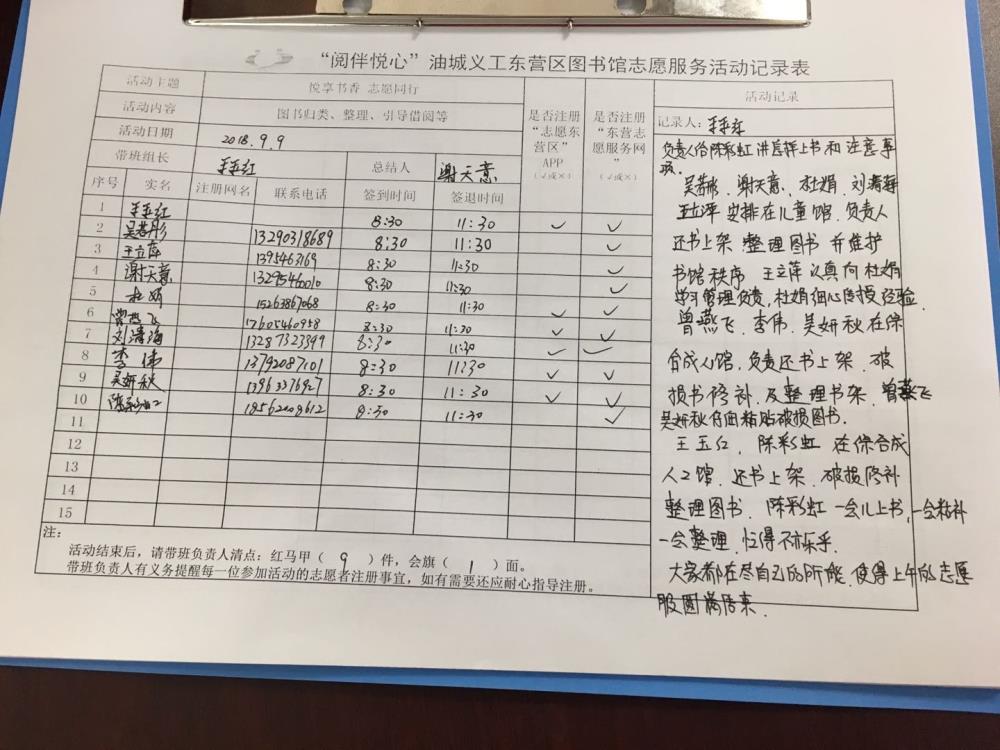 “阅伴悦心”油城义工东营区图书馆志愿服务活动记录表
活动主题 悦享书香 志愿同行
活动内容 图书归类、整理、引导借阅等
活动日期 2018.9.9
带班组长 王玉红 总结人 谢天意
是否注册“志愿东营区”APP（√或×）
是否注册“东营志愿服务网”（√或×）
序号 实名 注册网名 联系电话 签到时间 签退时间
1 王玉红 8:30 11:30 √ √
2 吴若彤 13290318689 8:30 11:30 √
3 王立萍 1395463169 8:30 11:30 √
4 谢天意 13295460010 8:30 11:30 √
5 杜娟 15263867068 8:30 11:30 √ √
6 曾燕飞 17605460958 8:30 11:30 √ √
7 刘清海 13287323399 8:30 11:30 √ √
8 李伟 13792087101 8:30 11:30 √ √
9 吴妍秋 13963376927 8:30 11:30 √ √
10 陈彩虹 18562008612 8:30 11:30 √
11
12
13
14
15
注：
活动结束后，请带班负责人清点：红马甲（ 9 ）件，会旗（ 1 ）面。
带班负责人有义务提醒每一位参加活动的志愿者注册事宜，如有需要还应耐心指导注册。
活动记录
记录人：王玉红
负责人给陈彩虹讲怎样上书和注意事
项。
吴若彤、谢天意、杜娟、刘清海
王立萍 安排在儿童馆，负责人
还书上架 整理图书 并维护
书馆秩序 王立萍认真向杜娟
学习管理负责，杜娟细心传授经验
曾燕飞、李伟、吴妍秋在综
合成人馆，负责还书上架、破
损书修补、及整理书架，曾燕飞
吴妍秋仔细粘贴破损图书．
王玉红，陈彩虹 在综合成
人2馆，还书上架，破损修补
整理图书．陈彩虹一会儿上书，一会粘补
一会整理，忙得不亦乐乎．
大家都在尽自己的所能，使得上午的志愿
服圆满结束．